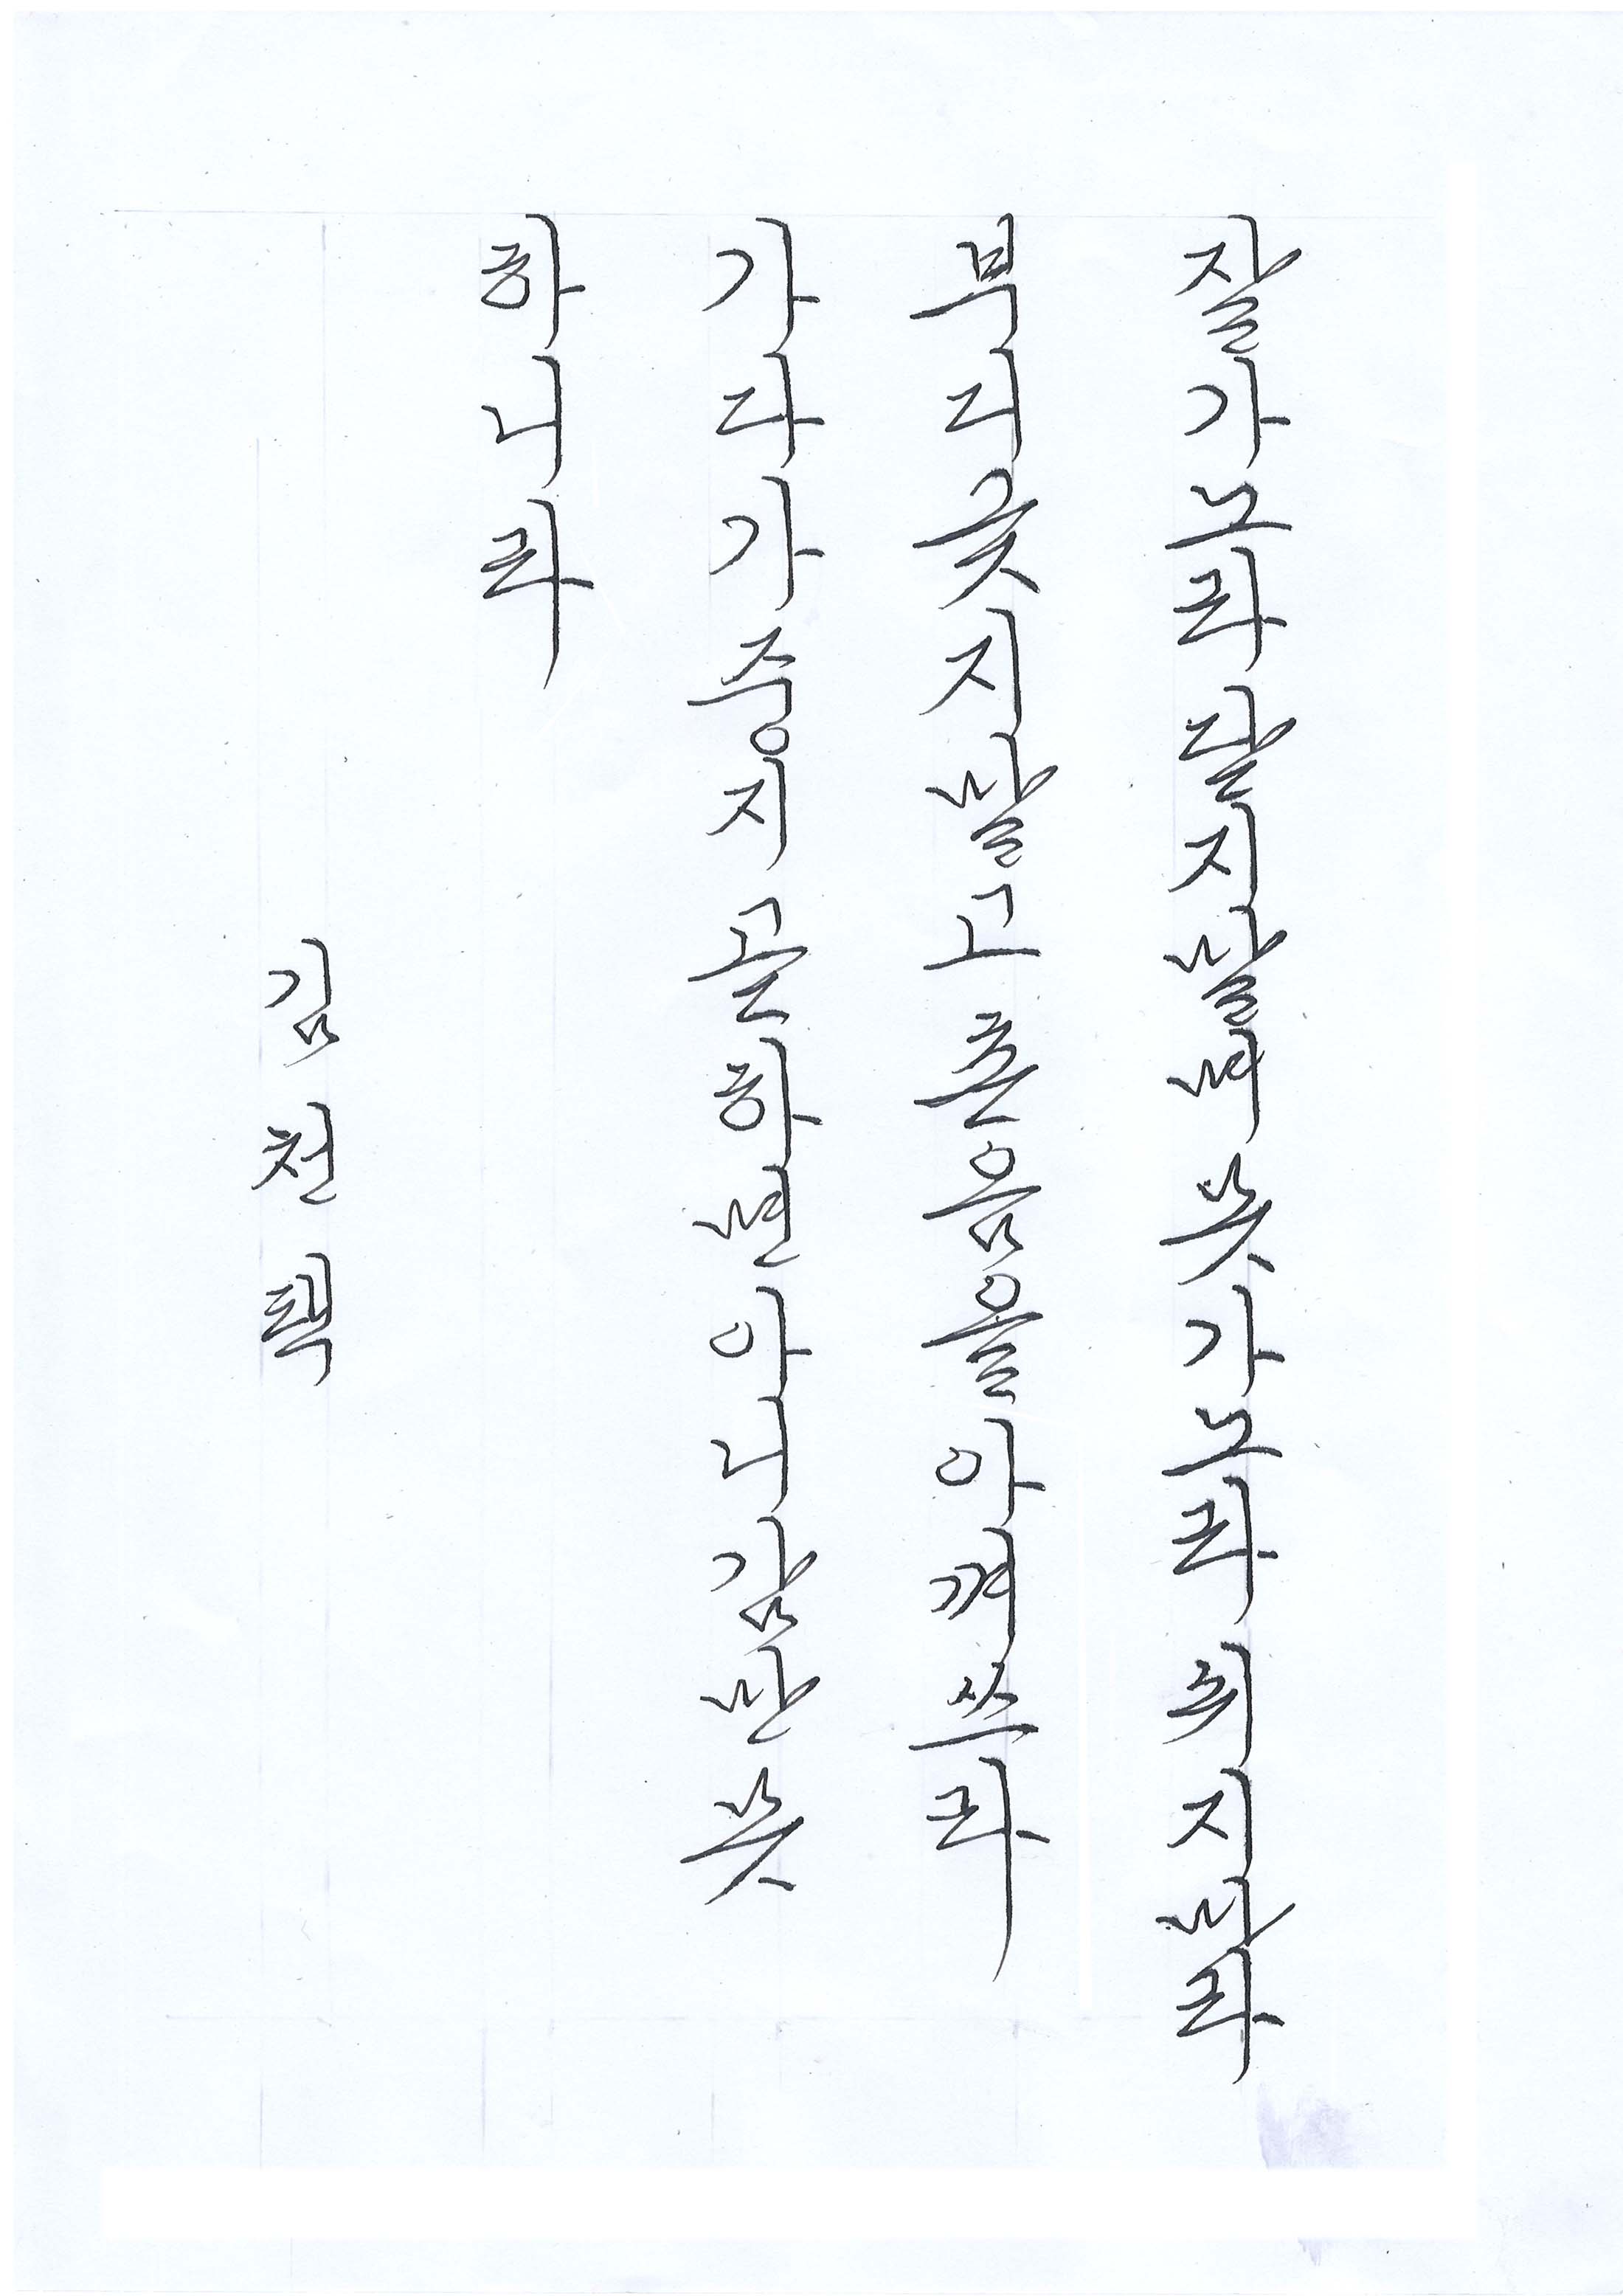 잘가노라닫지말며못가노라쉬지마라
부디긋지말고촌음을아껴쓰라
가다가중지곧하면아니감만못
하니라
김천택